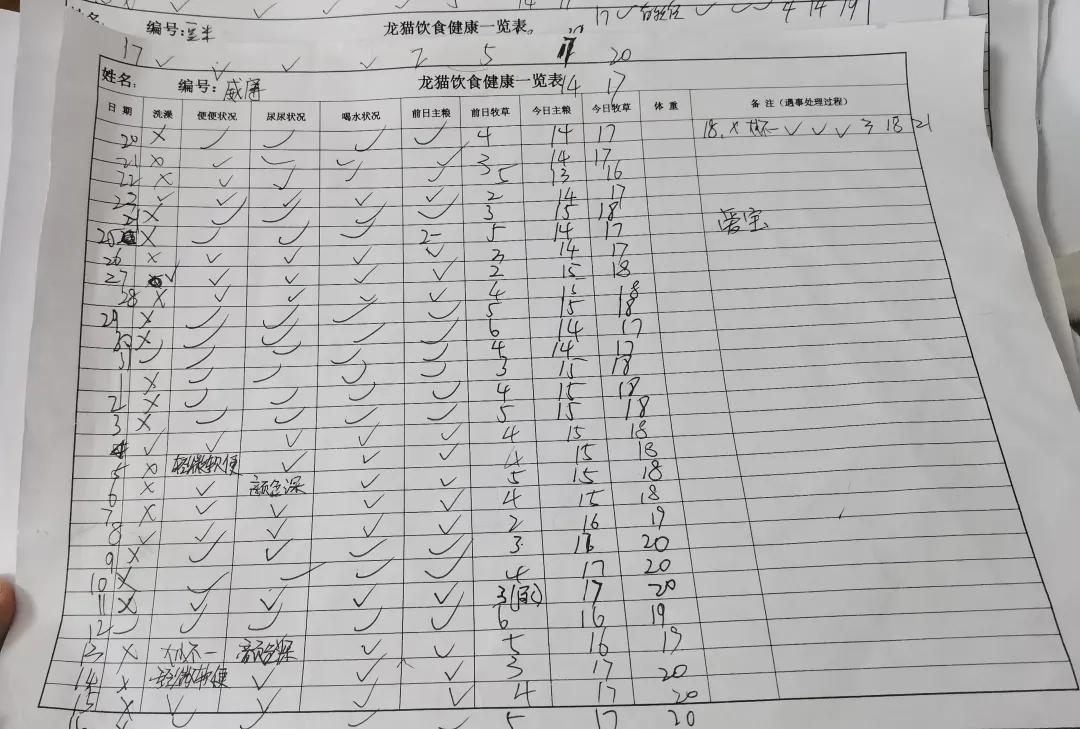 编号:豆米 龙猫饮食健康一览表。
17 ✓ ✓ ✓ ✓ 2 5 17 20
14 17
姓名: 编号: 威廉 龙猫饮食健康一览表
日期 洗澡 便便状况 尿尿状况 喝水状况 前日主粮 前日牧草 今日主粮 今日牧草 体重 备注(遇事处理过程)
20 × ✓ ✓ ✓ ✓ 4 14 17 18. × 大小不一 ✓ ✓ ✓ 3 18 21
21 × ✓ ✓ ✓ ✓ 3 14 17
22 × ✓ ✓ ✓ ✓ 5 13 16
23 ✓ ✓ ✓ ✓ ✓ 2 14 17
24 × ✓ ✓ ✓ ✓ 3 15 18 爱宝
25 × ✓ ✓ ✓ 2- 5 14 17
26 × ✓ ✓ ✓ ✓ 3 14 17
27 ✓ ✓ ✓ ✓ ✓ 2 15 18
28 × ✓ ✓ ✓ ✓ 4 15 18
29 × ✓ ✓ ✓ ✓ 5 15 18
30 × ✓ ✓ ✓ ✓ 6 14 17
31 ✓ ✓ ✓ ✓ ✓ 4 14 17
1 × ✓ ✓ ✓ ✓ 3 15 18
2 × ✓ ✓ ✓ ✓ 4 15 18
3 × ✓ ✓ ✓ ✓ 5 15 18
4 ✓ ✓ ✓ ✓ ✓ 4 15 18
5 × 轻微软便 ✓ ✓ ✓ 4 15 18
6 × ✓ 颜色深 ✓ ✓ 5 15 18
7 × ✓ ✓ ✓ ✓ 4 15 18
8 ✓ ✓ ✓ ✓ ✓ 2 16 19
9 × ✓ ✓ ✓ ✓ 3 16 20
10 × ✓ ✓ ✓ ✓ 4 17 20
11 × ✓ ✓ ✓ ✓ 3 17 20
12 ✓ ✓ ✓ ✓ ✓ 6 16 19
13 × 大小不一 颜色深 ✓ ✓ 5 16 19
14 × 轻微软便 ✓ ✓ ✓ 3 17 20
15 × ✓ ✓ ✓ ✓ 4 17 20
5 17 20